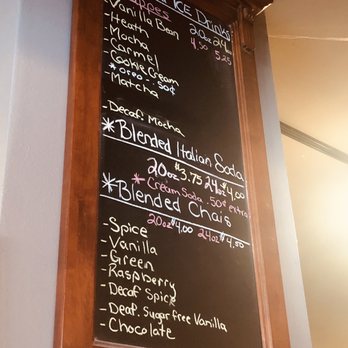 ICE Drinks
20oz 24oz
-Vanilla Bean 4.50 5.25
-Heath
-Mocha
-Carmel
-Cookie Cream
*oreo - 50¢
-Matcha
-Decaf Mocha
*Blended Italian Soda
20oz $3.75 24oz $4.00
*Cream Soda .50¢ extra
*Blended Chais
20oz $4.00 24oz $4.50
-Spice
-Vanilla
-Green
-Raspberry
-Decaf Spice
-Decaf. Sugar free Vanilla
-Chocolate